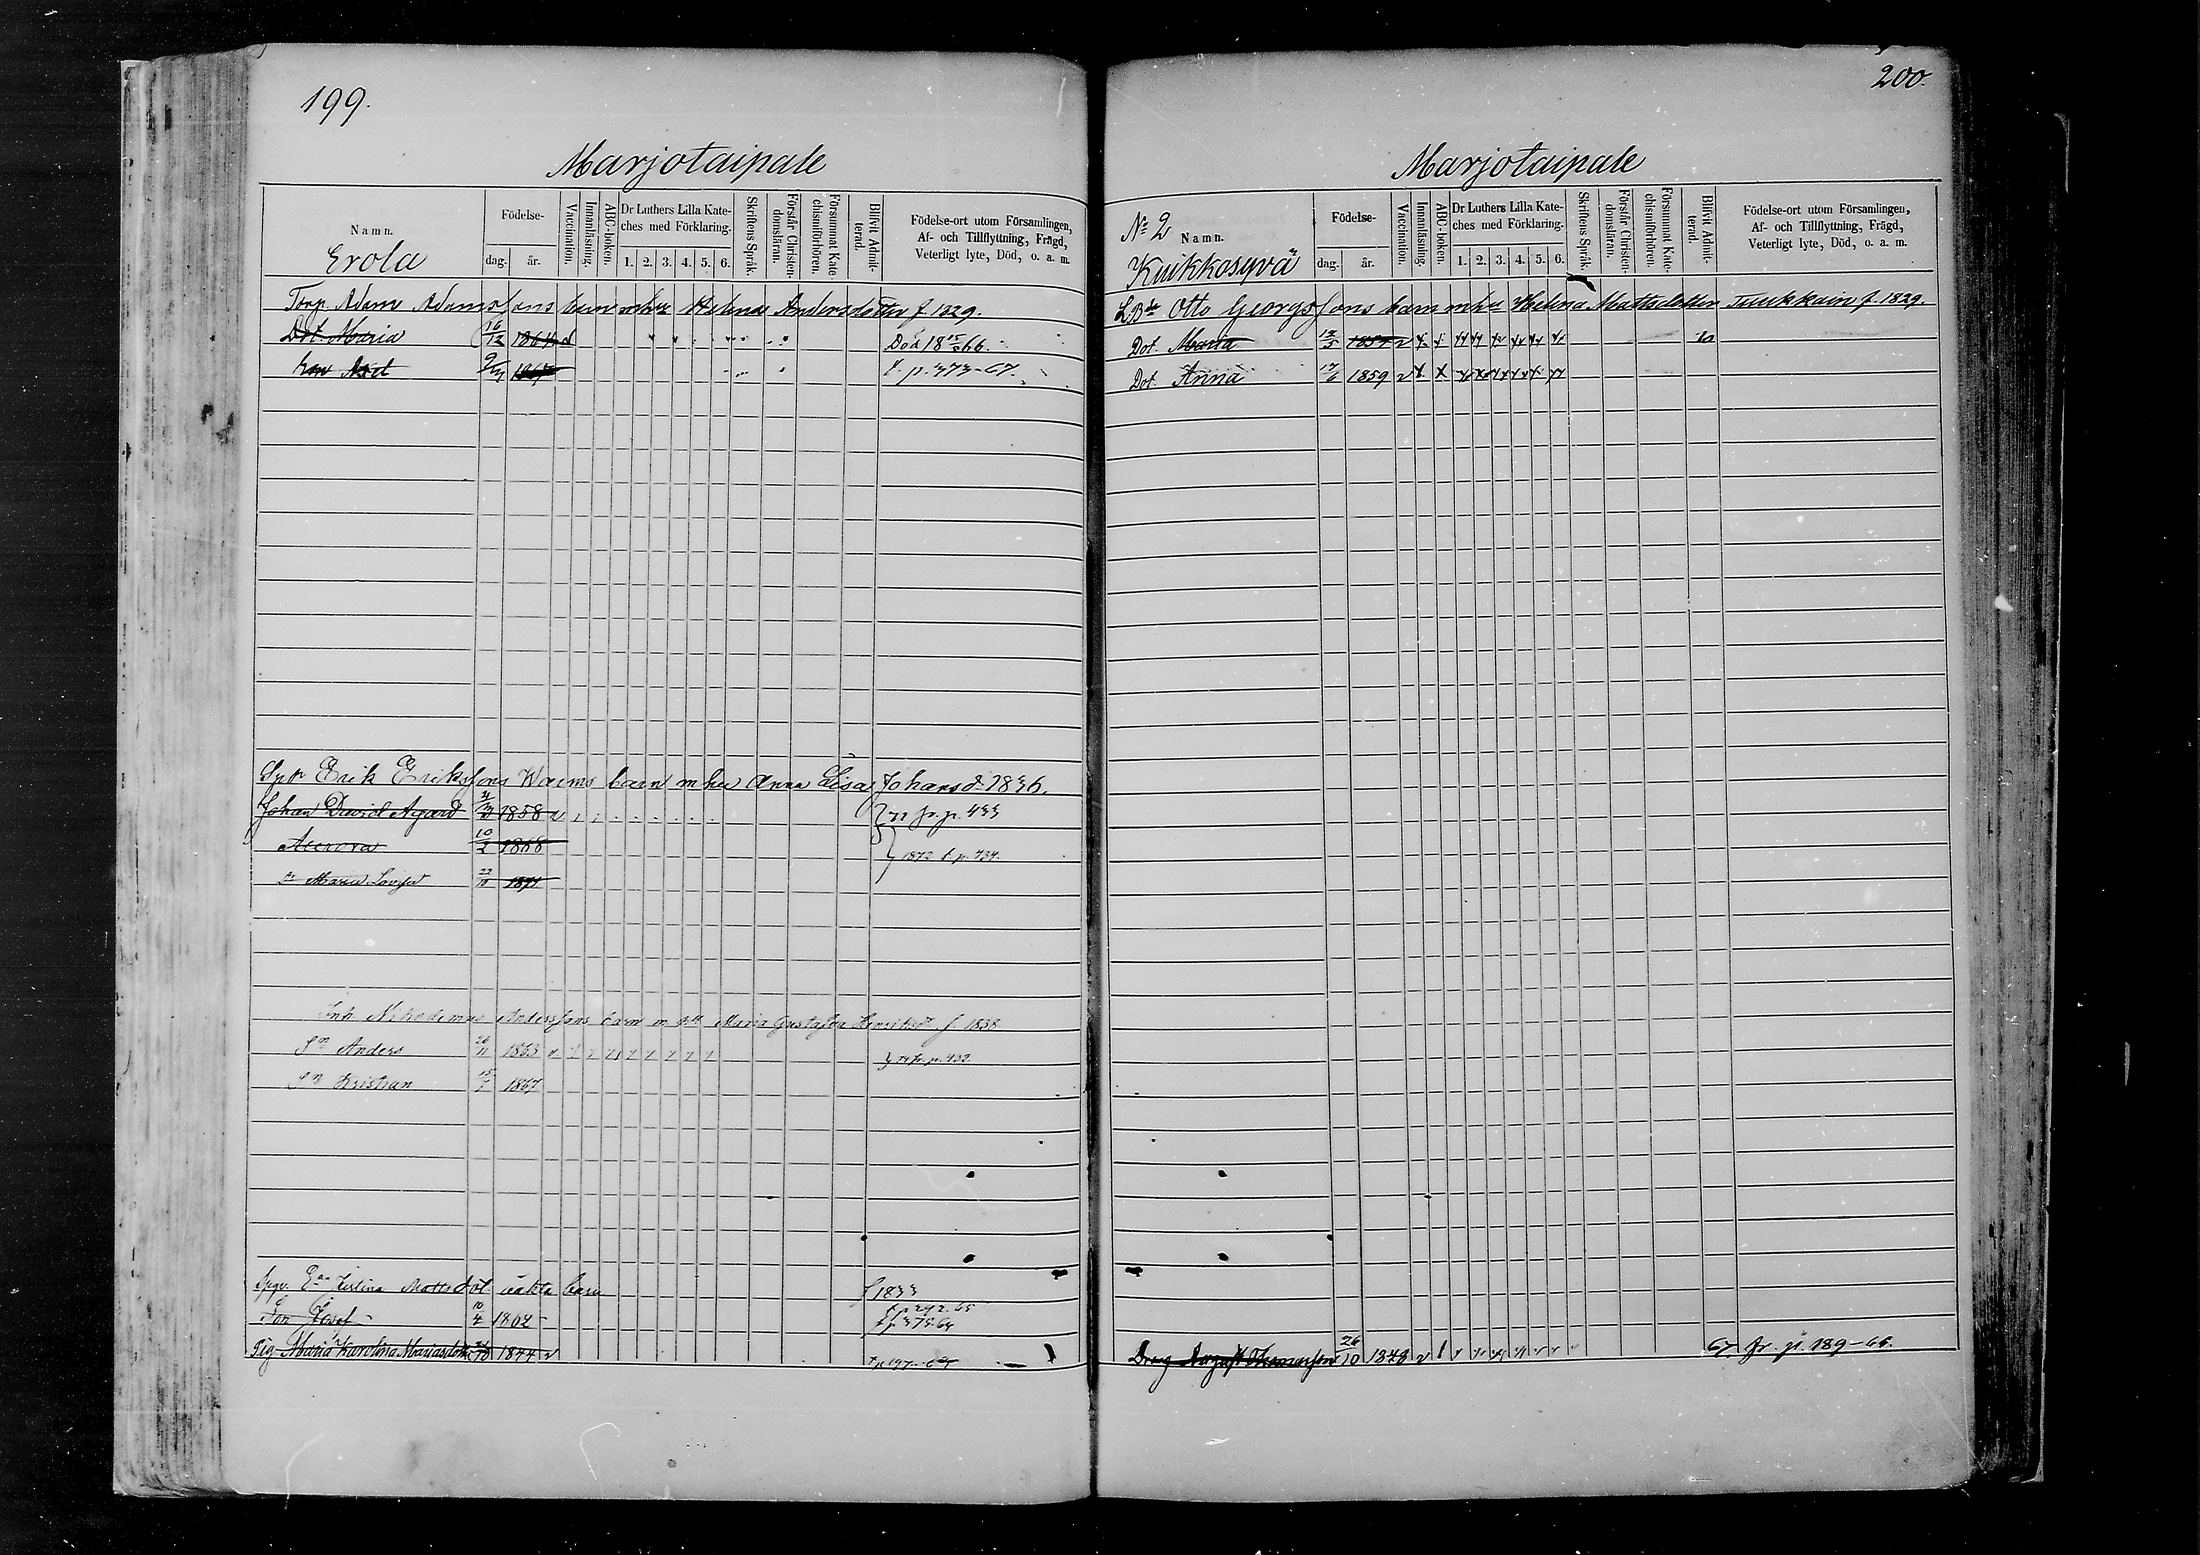 199.
Marjotaipale
Namn.
Erola
Födelse-
dag. år.
Vaccination.
Innanläsning.
ABC-boken.
Dr Luthers Lilla Kate-
ches med Förklaring.
1. 2. 3. 4. 5. 6.
Skriftens Språk.
Förstår Christen-
domsläran.
Försummat Kate-
chismiförhören.
Blifvit Admit-
terad.
Födelse-ort utom Församlingen,
Af- och Tillflyttning, Frägd,
Veterligt lyte, Död, o. a. m.
Torp. Adam Adamssons barn m hu Helena Andersdotter f. 1829.
Dot. Maria 16/12 1864 Död 18 15/5 66.
Axel t. p. 373-67.
Erik Erikssons Warms barn m hu Anna Lisa Johansd. 1836.
Johan David Agard 1858 72 fr. p. 433
Aurora 10/2 1868 1872 t. p. 434.
Maria Lovisa 22/10 1871
Inh Nikodemus Anderssons barn m Maria Gustafva Henriksd. f. 1838
Sn Anders 26/11 1863 74 fr. p. 432
Sn Kristian 15/7 1867
Enk. Kristina Mattsdot. oäkta barn f 1833
Son Josef 10/4 1862 t p 242. 65
t p 375 64
Pig. Maria Karolina Mariasdotter 1844
200.
Marjotaipale
No 2 Namn.
Kuikkosyvä
Födelse-
dag. år.
Vaccination.
Innanläsning.
ABC-boken.
Dr Luthers Lilla Kate-
ches med Förklaring.
1. 2. 3. 4. 5. 6.
Skriftens Språk.
Förstår Christen-
domsläran.
Försummat Kate-
chismiförhören.
Blifvit Admit-
terad.
Födelse-ort utom Församlingen,
Af- och Tillflyttning, Frägd,
Veterligt lyte, Död, o. a. m.
LBde Otto Georgssons barn m hu Helena Mattsdotter Tuukkain f. 1829.
Dot. Maria 1857
Dot. Anna 17/6 1859
Dreng August Thomasson 26/10 1848 67. fr. p. 189-66.